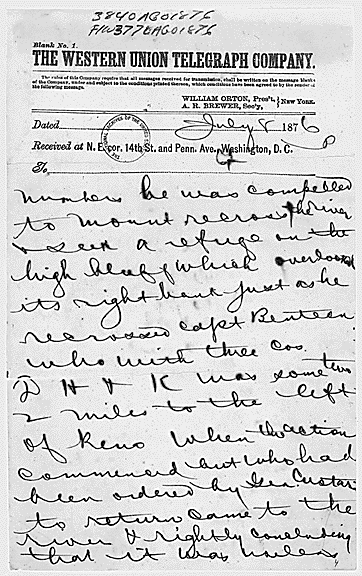 3840AGO1876
HW3770AGO1876
Blank No. 1.
THE WESTERN UNION TELEGRAPH COMPANY.
The rules of this Company require that all messages received for transmission, shall be written on the message blanks
of the Company, under and subject to the conditions printed thereon, which conditions have been agreed to by the sender of
the following message.
WILLIAM ORTON, Pres't, } New York.
A. R. BREWER, Sec'y,
Dated July 8 1876
Received at N. E. cor. 14th St. and Penn. Ave., Washington, D. C.
To
numbers he was compelled
to mount recross the river
& seek a refuge on the
high bluff which overlook
its right bank just as he
recrossed Capt Benteen
who with three cos.
D H & K was some two
2 miles to the left
of Reno when the action
commenced but who had
been ordered by Gen Custar
to return came to the
river & rightly concluding
that it was useless